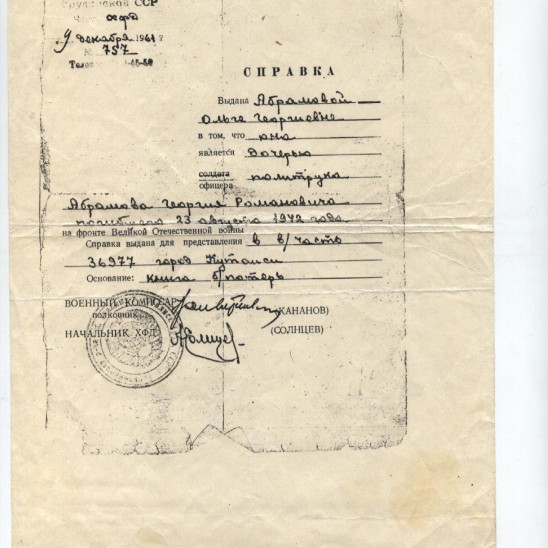 ССР
9 декабря 1961 г
№ 757
СПРАВКА
Выдана Абрамовой
Ольге Георгиевне
в том, что она
является дочерью
солдата политрука
офицера
Абрамова Георгия Романовича
погибшего 23 августа 1942 года
на фронте Великой Отечественной войны
Справка выдана для представления в в/часть
36977 город Кутаиси
Основание: книга потерь
ВОЕННЫЙ КОМИССАР
полковник (КАНАНОВ)
НАЧАЛЬНИК ХФД (СОЛНЦЕВ)